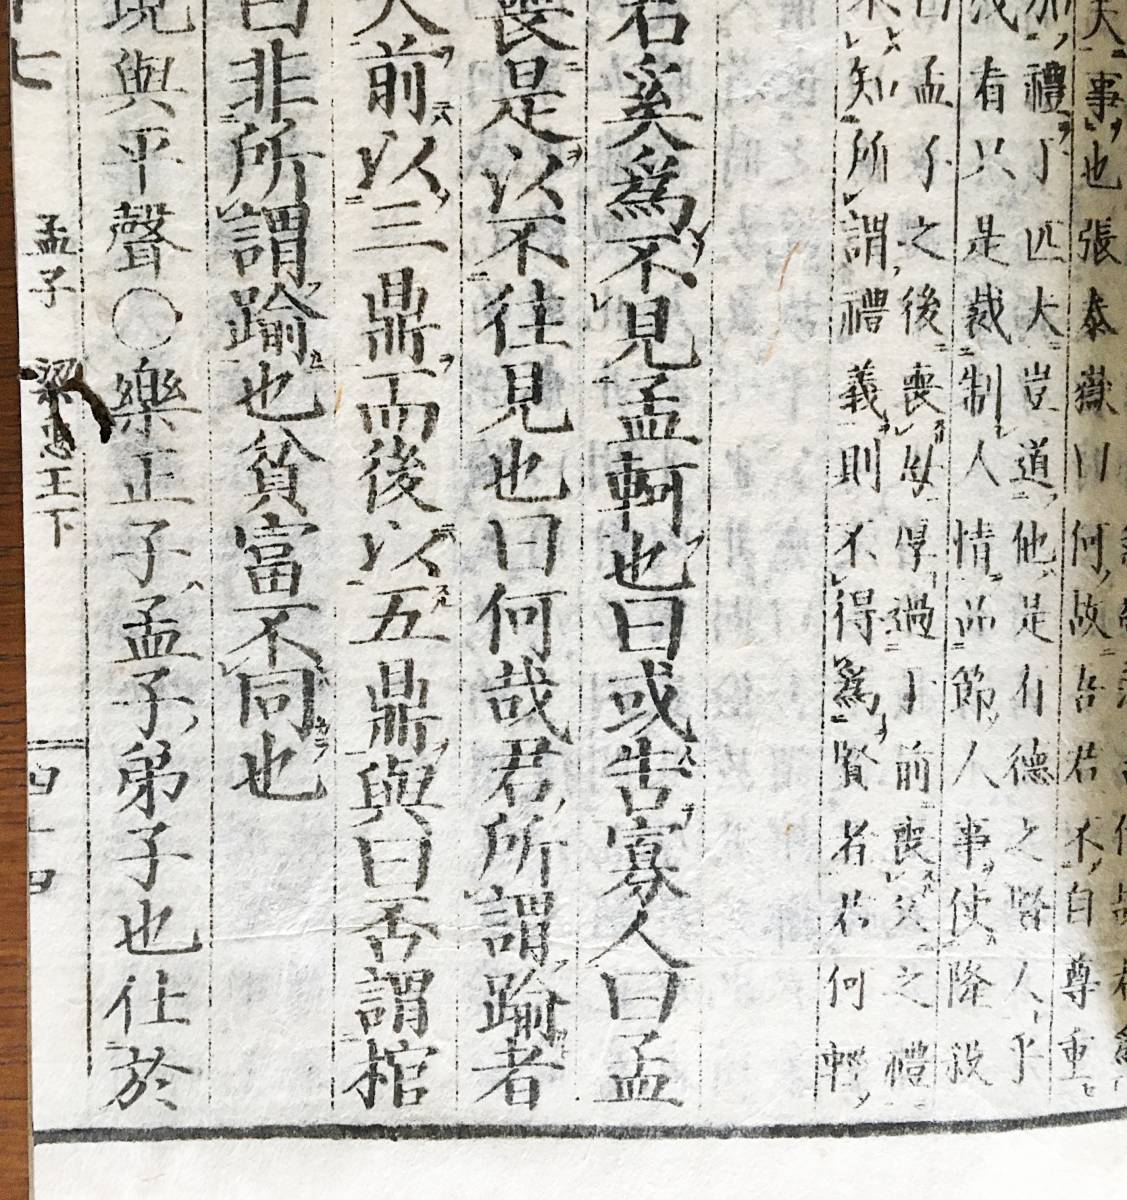 事也張泰嶽曰何故吾君不自尊重
禮于匹夫豈道他是有德之賢人乎
有只是裁制人情品節人事使降殺
孟子之後喪母厚過于前喪父之禮
知所謂禮義則不得為賢者若何輕
君奚爲不見孟軻也曰或告寡人曰孟
喪是以不往見也曰何哉君所謂踰者
前以三鼎而後以五鼎與曰否謂棺
曰非所謂踰也貧富不同也
現與平聲○樂正子孟子弟子也仕於
孟子 梁惠王下 四十四